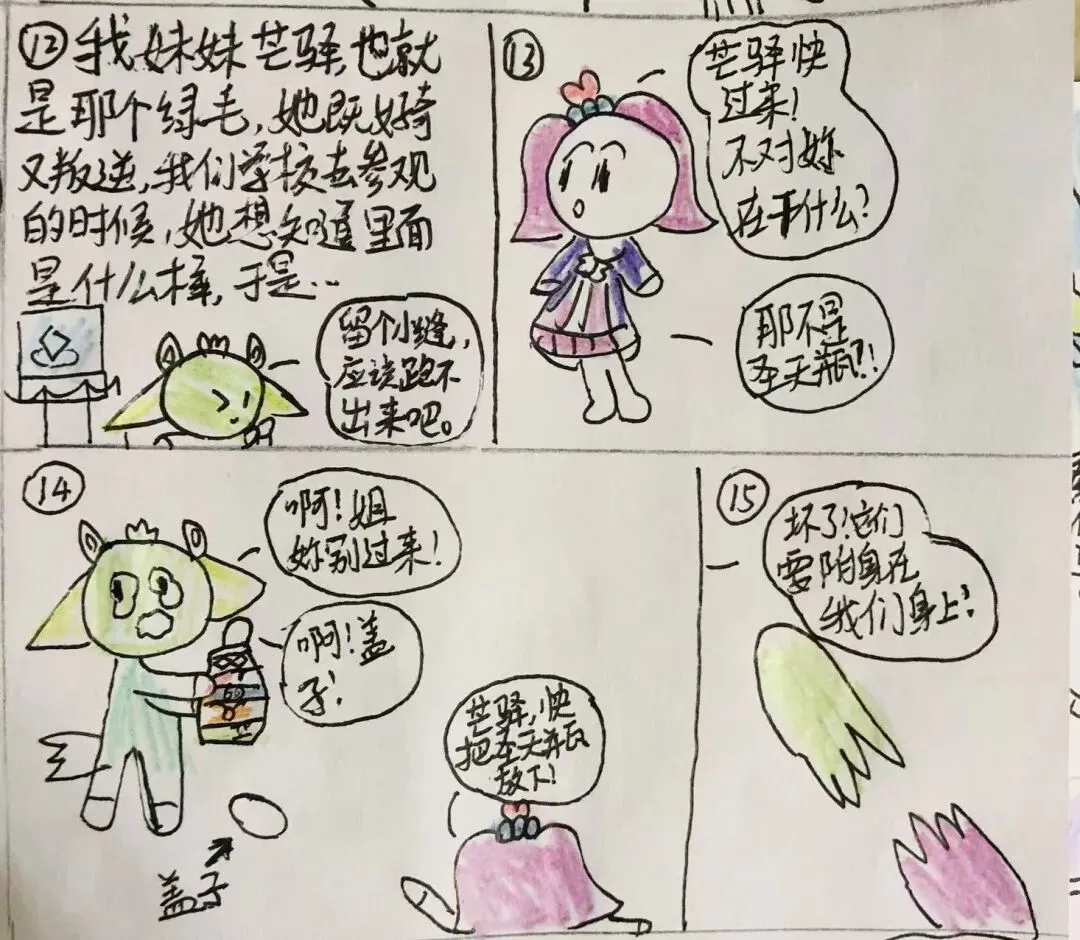 ⑫我妹妹芒驿,也就
是那个绿毛,她既好奇
又叛逆,我们学校去参观
的时候,她想知道里面
是什么样,于是...
留个小缝,
应该跑不
出来吧。
⑬
芒驿快
过来!
不对妳
在干什么?
那不是
圣天瓶?!
⑭
啊!姐
妳别过来!
啊!盖
子!
芒驿,快
把圣天瓶
放下!
盖子
⑮
坏了!它们
要附身在
我们身上!